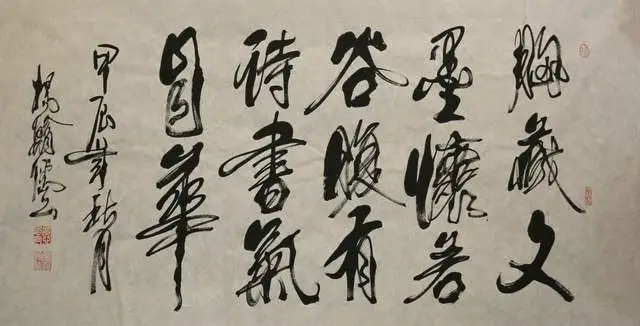 胸藏文
墨懷若
谷腹有
詩書氣
自華
甲辰年秋月
楊